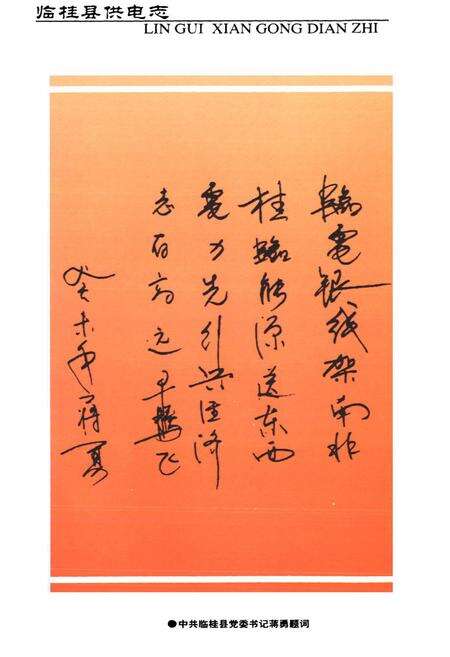 临桂县供电志
LIN GUI XIAN GONG DIAN ZHI
臨電银线架南北
桂臨能源送东西
電力先行兴经济
志向高远早騰飞
癸未年蒋勇
●中共临桂县党委书记蒋勇题词